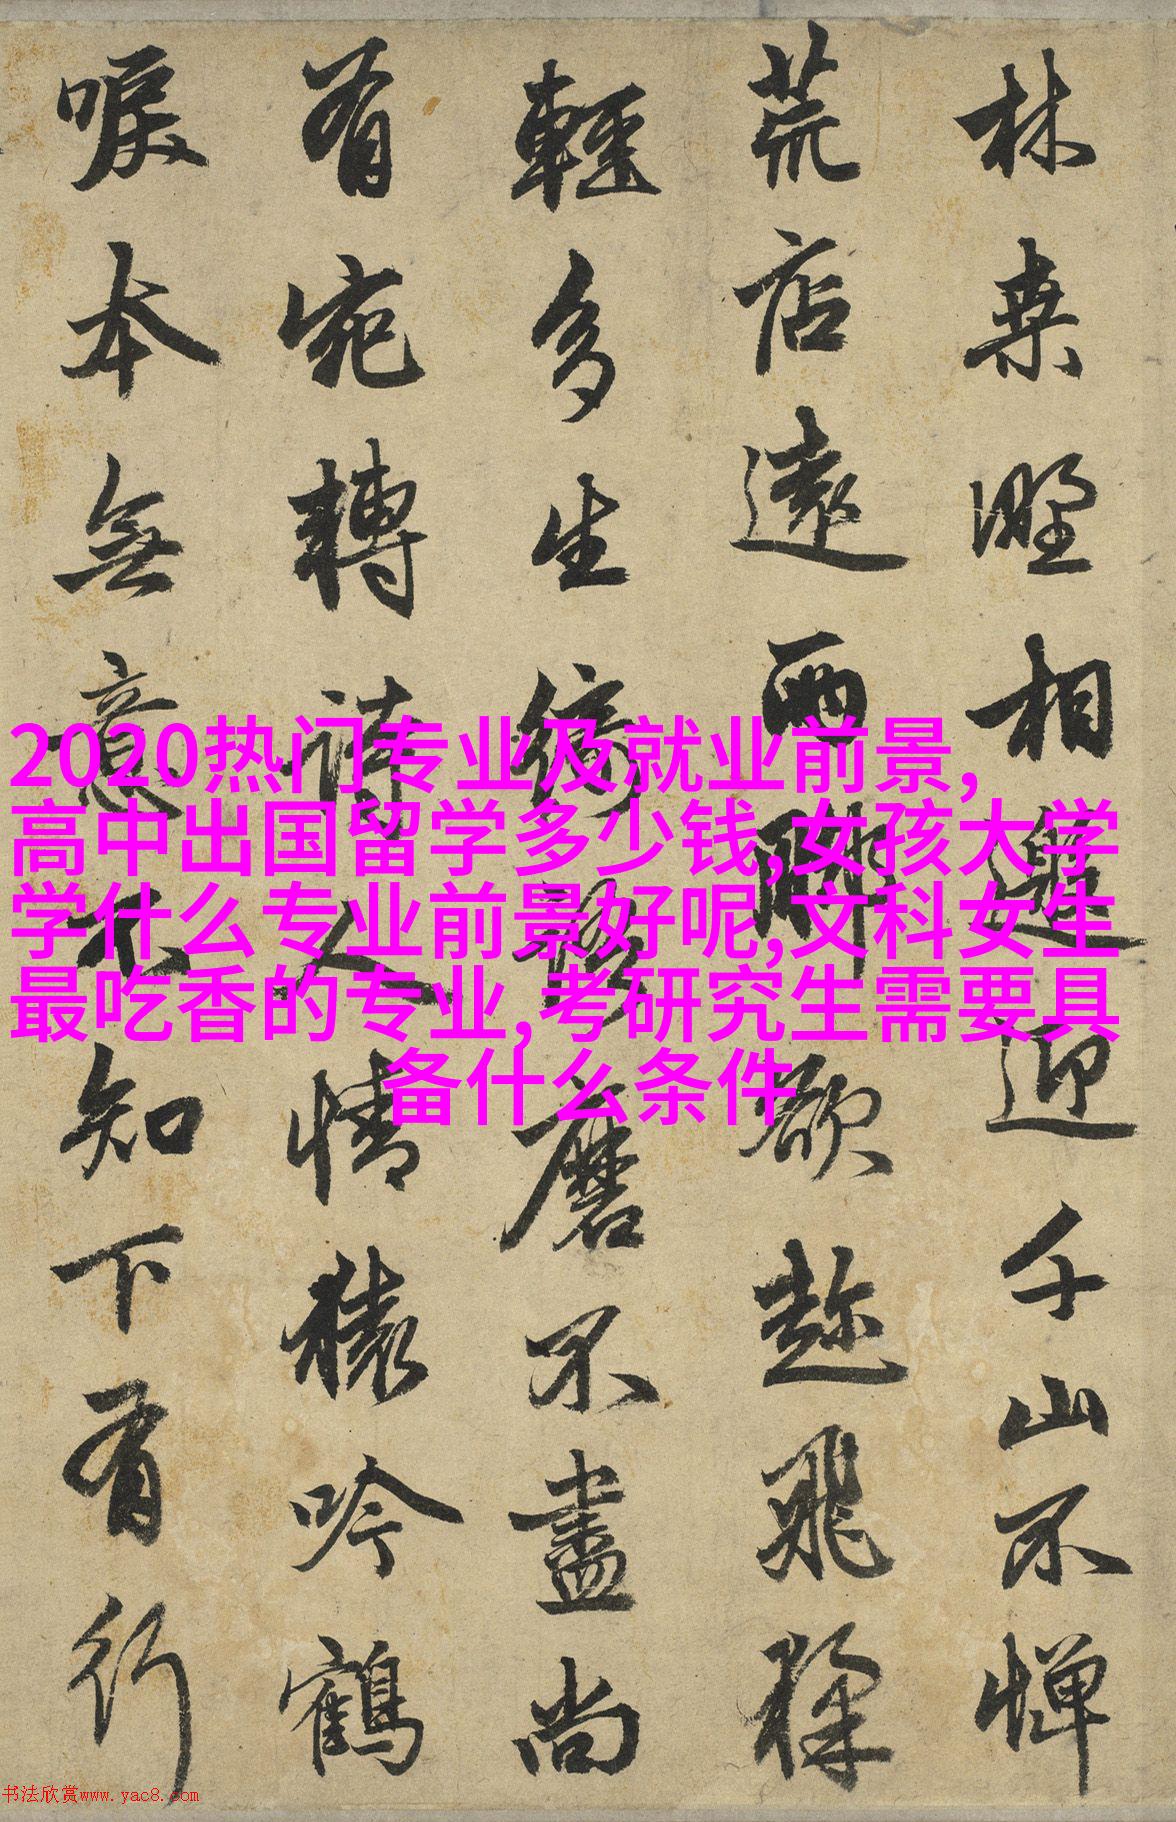 林桒野相邀迎千山不憚
荒店遠兩脚欲趂飛猱
輕多生綺語磨不盡尚
有宛轉詩人情猿吟鶴
唳本無意不知下有行
2020热门专业及就业前景,
高中出国留学多少钱,女孩大学
学什么专业前景好呢,文科女生
最吃香的专业,考研究生需要具
备什么条件
书法欣赏www.yac8.com